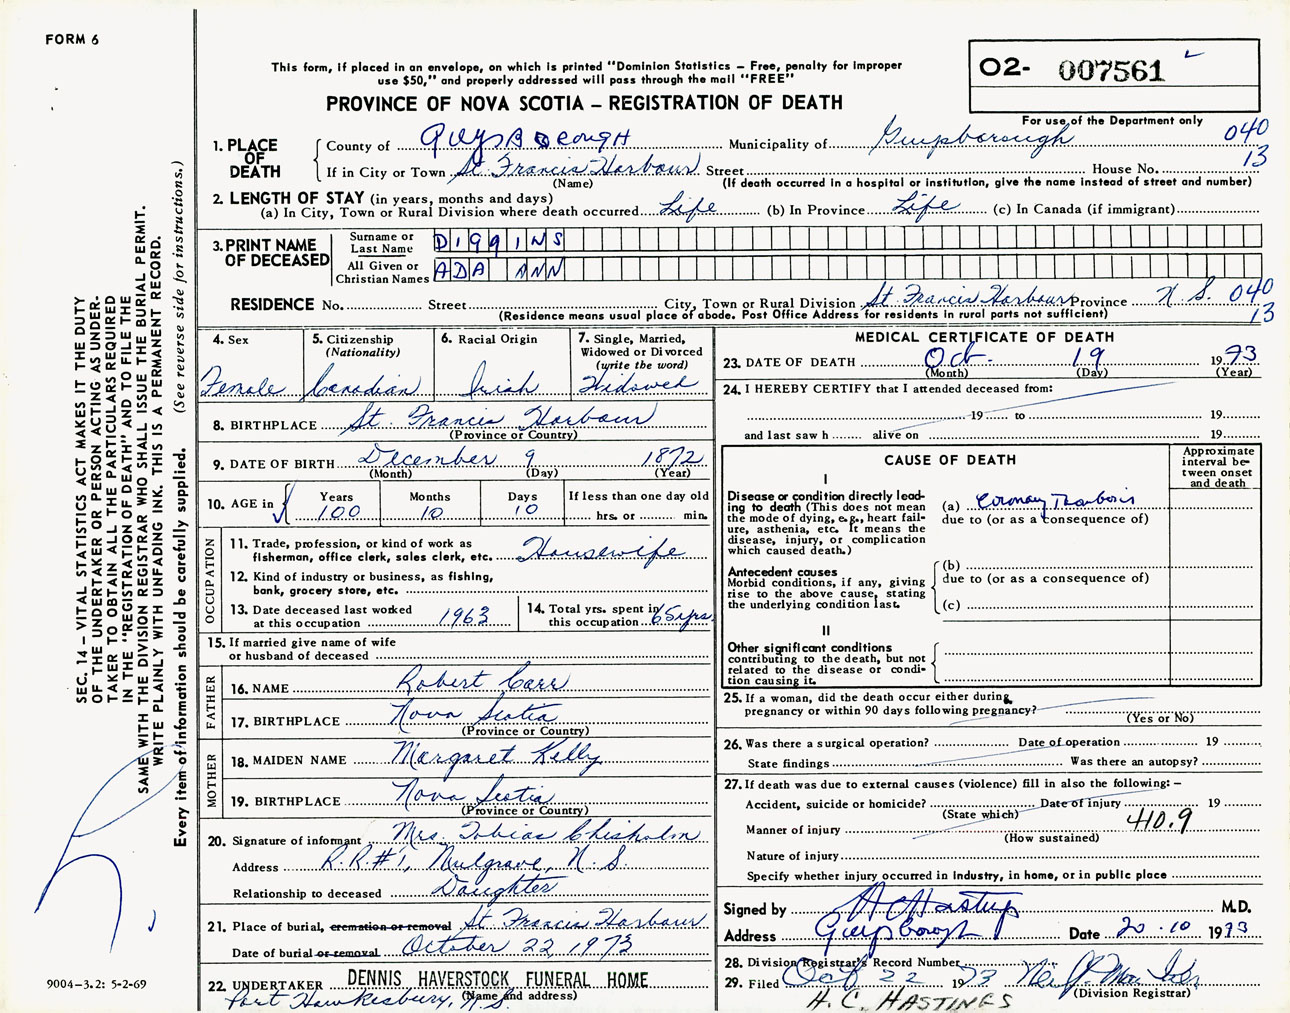 FORM 6
SEC. 14 – VITAL STATISTICS ACT MAKES IT THE DUTY
OF THE UNDERTAKER OR PERSON ACTING AS UNDER-
TAKER TO OBTAIN ALL THE PARTICULARS REQUIRED
IN THE "REGISTRATION OF DEATH" AND TO FILE THE
SAME WITH THE DIVISION REGISTRAR WHO SHALL ISSUE THE BURIAL PERMIT.
WRITE PLAINLY WITH UNFADING INK. THIS IS A PERMANENT RECORD.
Every item of information should be carefully supplied. (See reverse side for instructions.)
9004-3.2: 5-2-69
This form, if placed in an envelope, on which is printed "Dominion Statistics – Free, penalty for improper
use $50," and properly addressed will pass through the mail "FREE"
PROVINCE OF NOVA SCOTIA – REGISTRATION OF DEATH
O2- 007561
For use of the Department only
1. PLACE OF DEATH
County of Guysborough Municipality of Guysborough 040
If in City or Town St. Francis Harbour Street House No. 13
(Name) (If death occurred in a hospital or institution, give the name instead of street and number)
2. LENGTH OF STAY (in years, months and days)
(a) In City, Town or Rural Division where death occurred Life (b) In Province Life (c) In Canada (if immigrant)
3. PRINT NAME OF DECEASED
Surname or Last Name DIggINS
All Given or Christian Names ADA ANN
RESIDENCE No. Street City, Town or Rural Division St. Francis Harbour Province N. S. 040
(Residence means usual place of abode. Post Office Address for residents in rural parts not sufficient) 13
4. Sex Female
5. Citizenship (Nationality) Canadian
6. Racial Origin Irish
7. Single, Married, Widowed or Divorced (write the word) Widowed
8. BIRTHPLACE St. Francis Harbour
(Province or Country)
9. DATE OF BIRTH December 9 1872
(Month) (Day) (Year)
10. AGE in Years 100 Months 10 Days 10 If less than one day old hrs. or min.
OCCUPATION
11. Trade, profession, or kind of work as
fisherman, office clerk, sales clerk, etc. Housewife
12. Kind of industry or business, as fishing,
bank, grocery store, etc.
13. Date deceased last worked
at this occupation 1963
14. Total yrs. spent in
this occupation 65 yrs.
15. If married give name of wife
or husband of deceased
FATHER
16. NAME Robert Carr
17. BIRTHPLACE Nova Scotia
(Province or Country)
MOTHER
18. MAIDEN NAME Margaret Kelly
19. BIRTHPLACE Nova Scotia
(Province or Country)
20. Signature of informant Mrs. Tobias Chisholm
Address R.R.#1, Mulgrave, N. S.
Relationship to deceased Daughter
21. Place of burial, cremation or removal St. Francis Harbour
Date of burial or removal October 22, 1973
22. UNDERTAKER DENNIS HAVERSTOCK FUNERAL HOME
(Name and address)
Port Hawkesbury, N.S.
MEDICAL CERTIFICATE OF DEATH
23. DATE OF DEATH Oct. 19 1973
(Month) (Day) (Year)
24. I HEREBY CERTIFY that I attended deceased from:
19 to 19
and last saw h alive on 19
CAUSE OF DEATH
Approximate interval between onset and death
I
Disease or condition directly lead-
ing to death (This does not mean
the mode of dying, e.g., heart fail-
ure, asthenia, etc. It means the
disease, injury, or complication
which caused death.)
(a) Coronary Thrombosis
due to (or as a consequence of)
Antecedent causes
Morbid conditions, if any, giving
rise to the above cause, stating
the underlying condition last.
(b)
due to (or as a consequence of)
(c)
II
Other significant conditions
contributing to the death, but not
related to the disease or condi-
tion causing it.
25. If a woman, did the death occur either during
pregnancy or within 90 days following pregnancy?
(Yes or No)
26. Was there a surgical operation? Date of operation 19
State findings Was there an autopsy?
27. If death was due to external causes (violence) fill in also the following: –
Accident, suicide or homicide? Date of injury 19
(State which)
Manner of injury 410.9
(How sustained)
Nature of injury
Specify whether injury occurred in industry, in home, or in public place
Signed by H C Hastings M.D.
Address Guysborough Date 20 . 10 1973
28. Division Registrar's Record Number
29. Filed Oct 22 1973
(Division Registrar)
H. C. HASTINGS